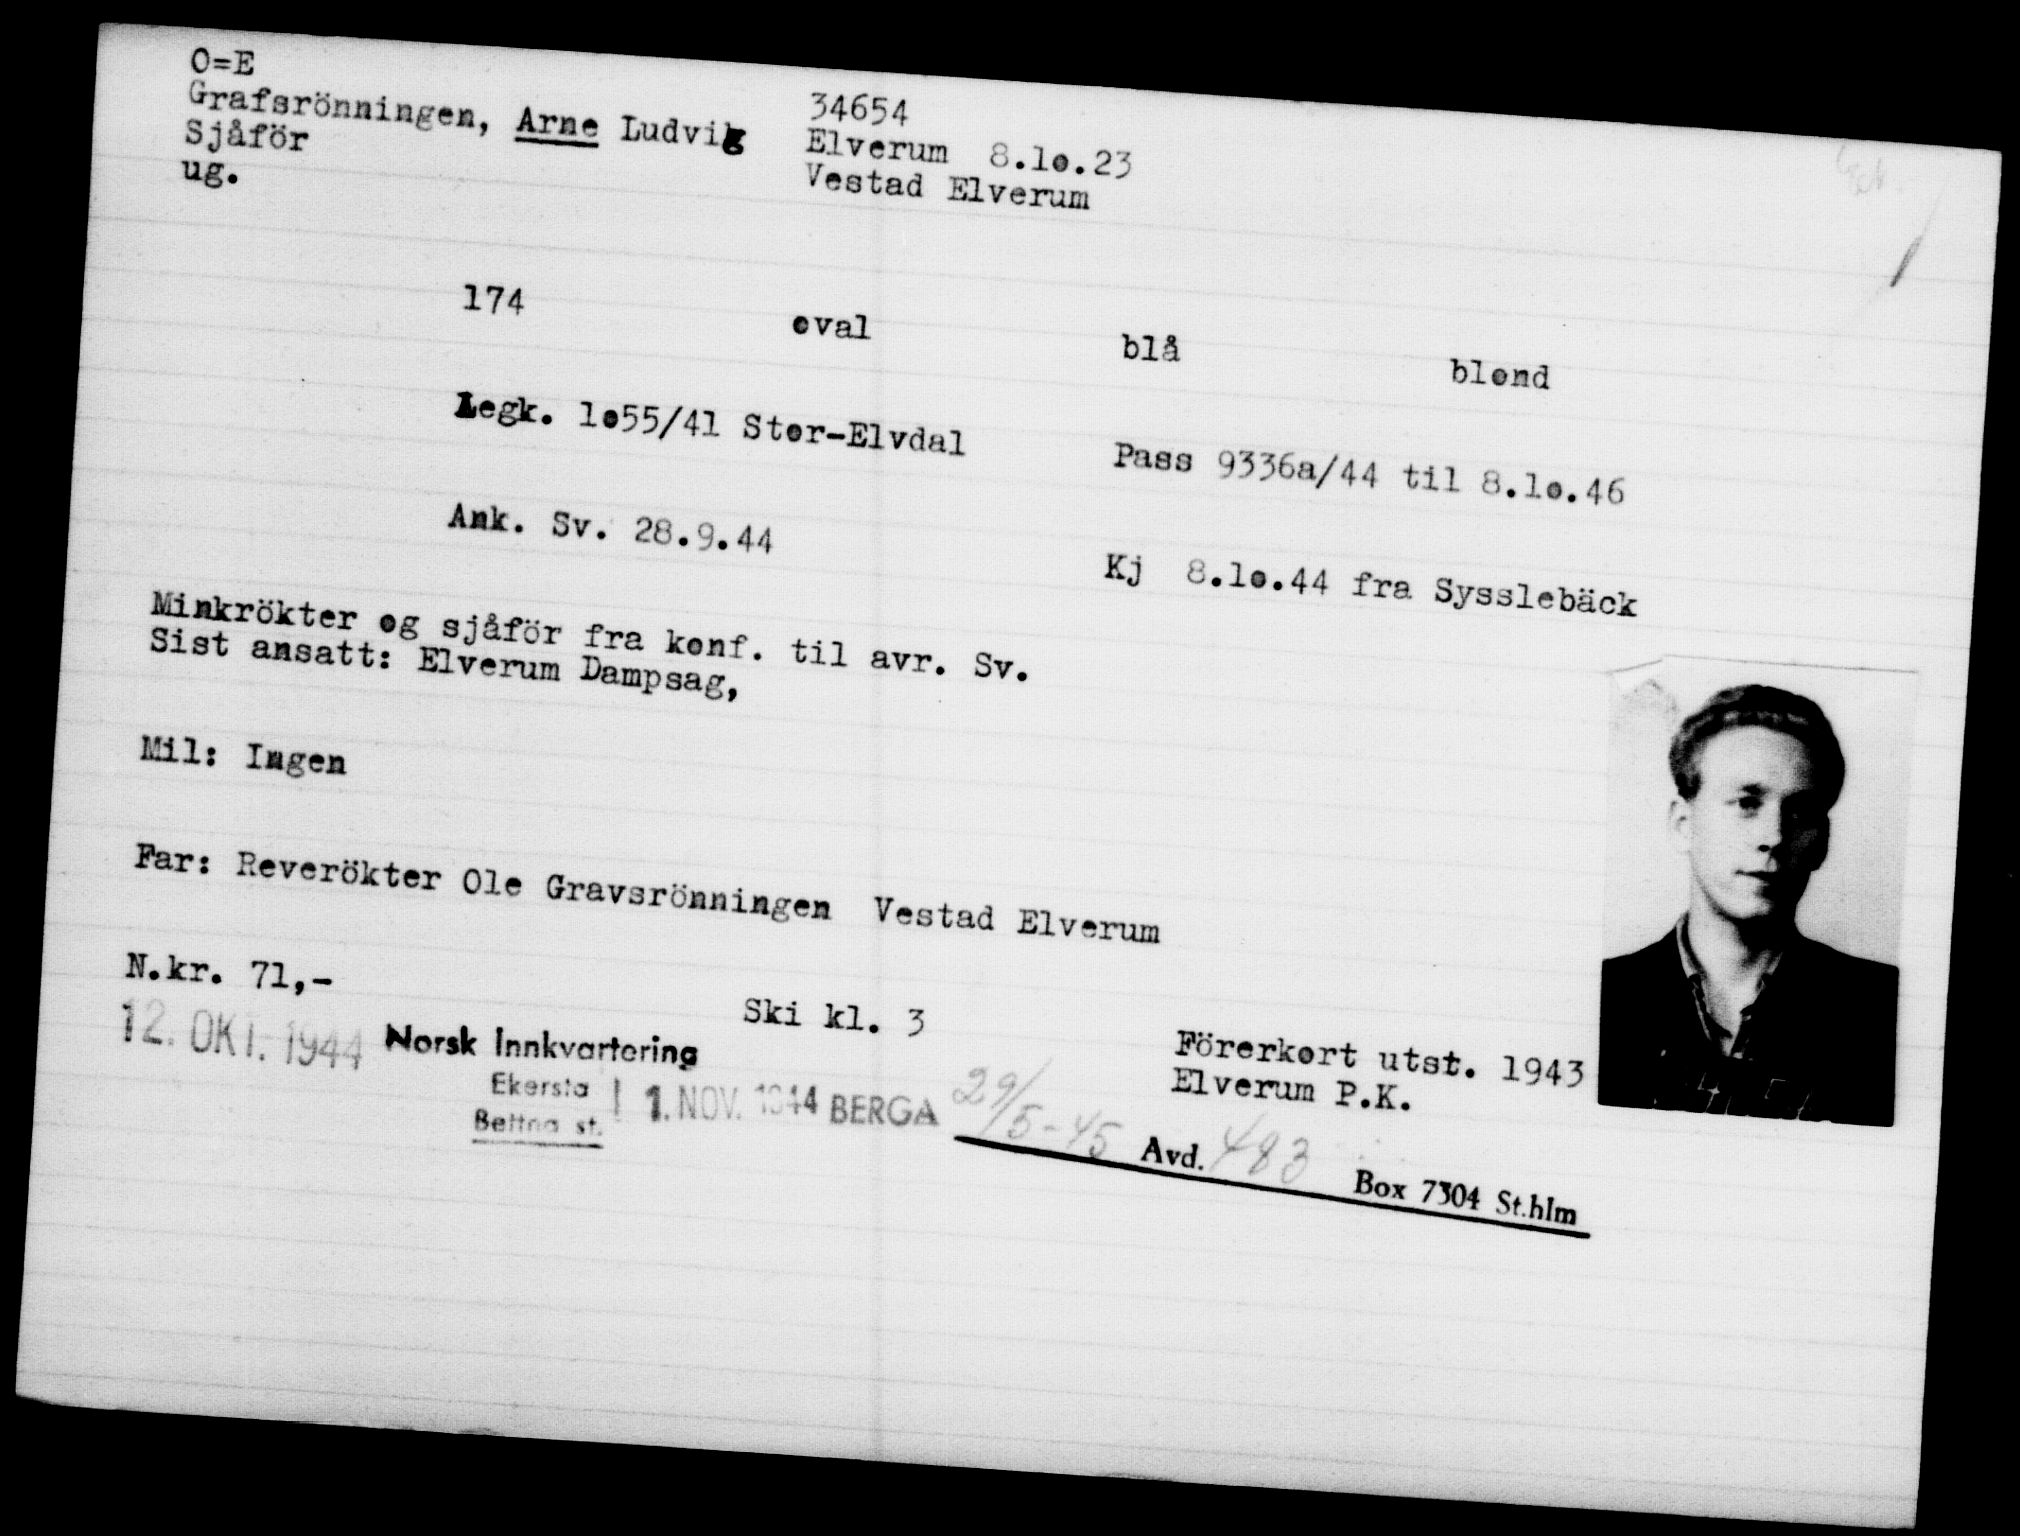 O=E
Grafsrönningen, Arne Ludvig
Sjåför
ug.
34654
Elverum 8.10.23
Vestad Elverum
174 oval blå blond
Legk. 1055/41 Stor-Elvdal Pass 9336a/44 til 8.10.46
Ank. Sv. 28.9.44 Kj 8.10.44 fra Sysslebäck
Minkrökter og sjåför fra konf. til avr. Sv.
Sist ansatt: Elverum Dampsag,
Mil: Ingen
Far: Reverökter Ole Gravsrönningen Vestad Elverum
N.kr. 71,- Ski kl. 3 Förerkort utst. 1943
Elverum P.K.
12. OKT. 1944 Norsk Innkvartering
Ekersta
Bettna st.
1. NOV. 1944 BERGA
29/5-45 Avd. 483 Box 7304 St.hlm